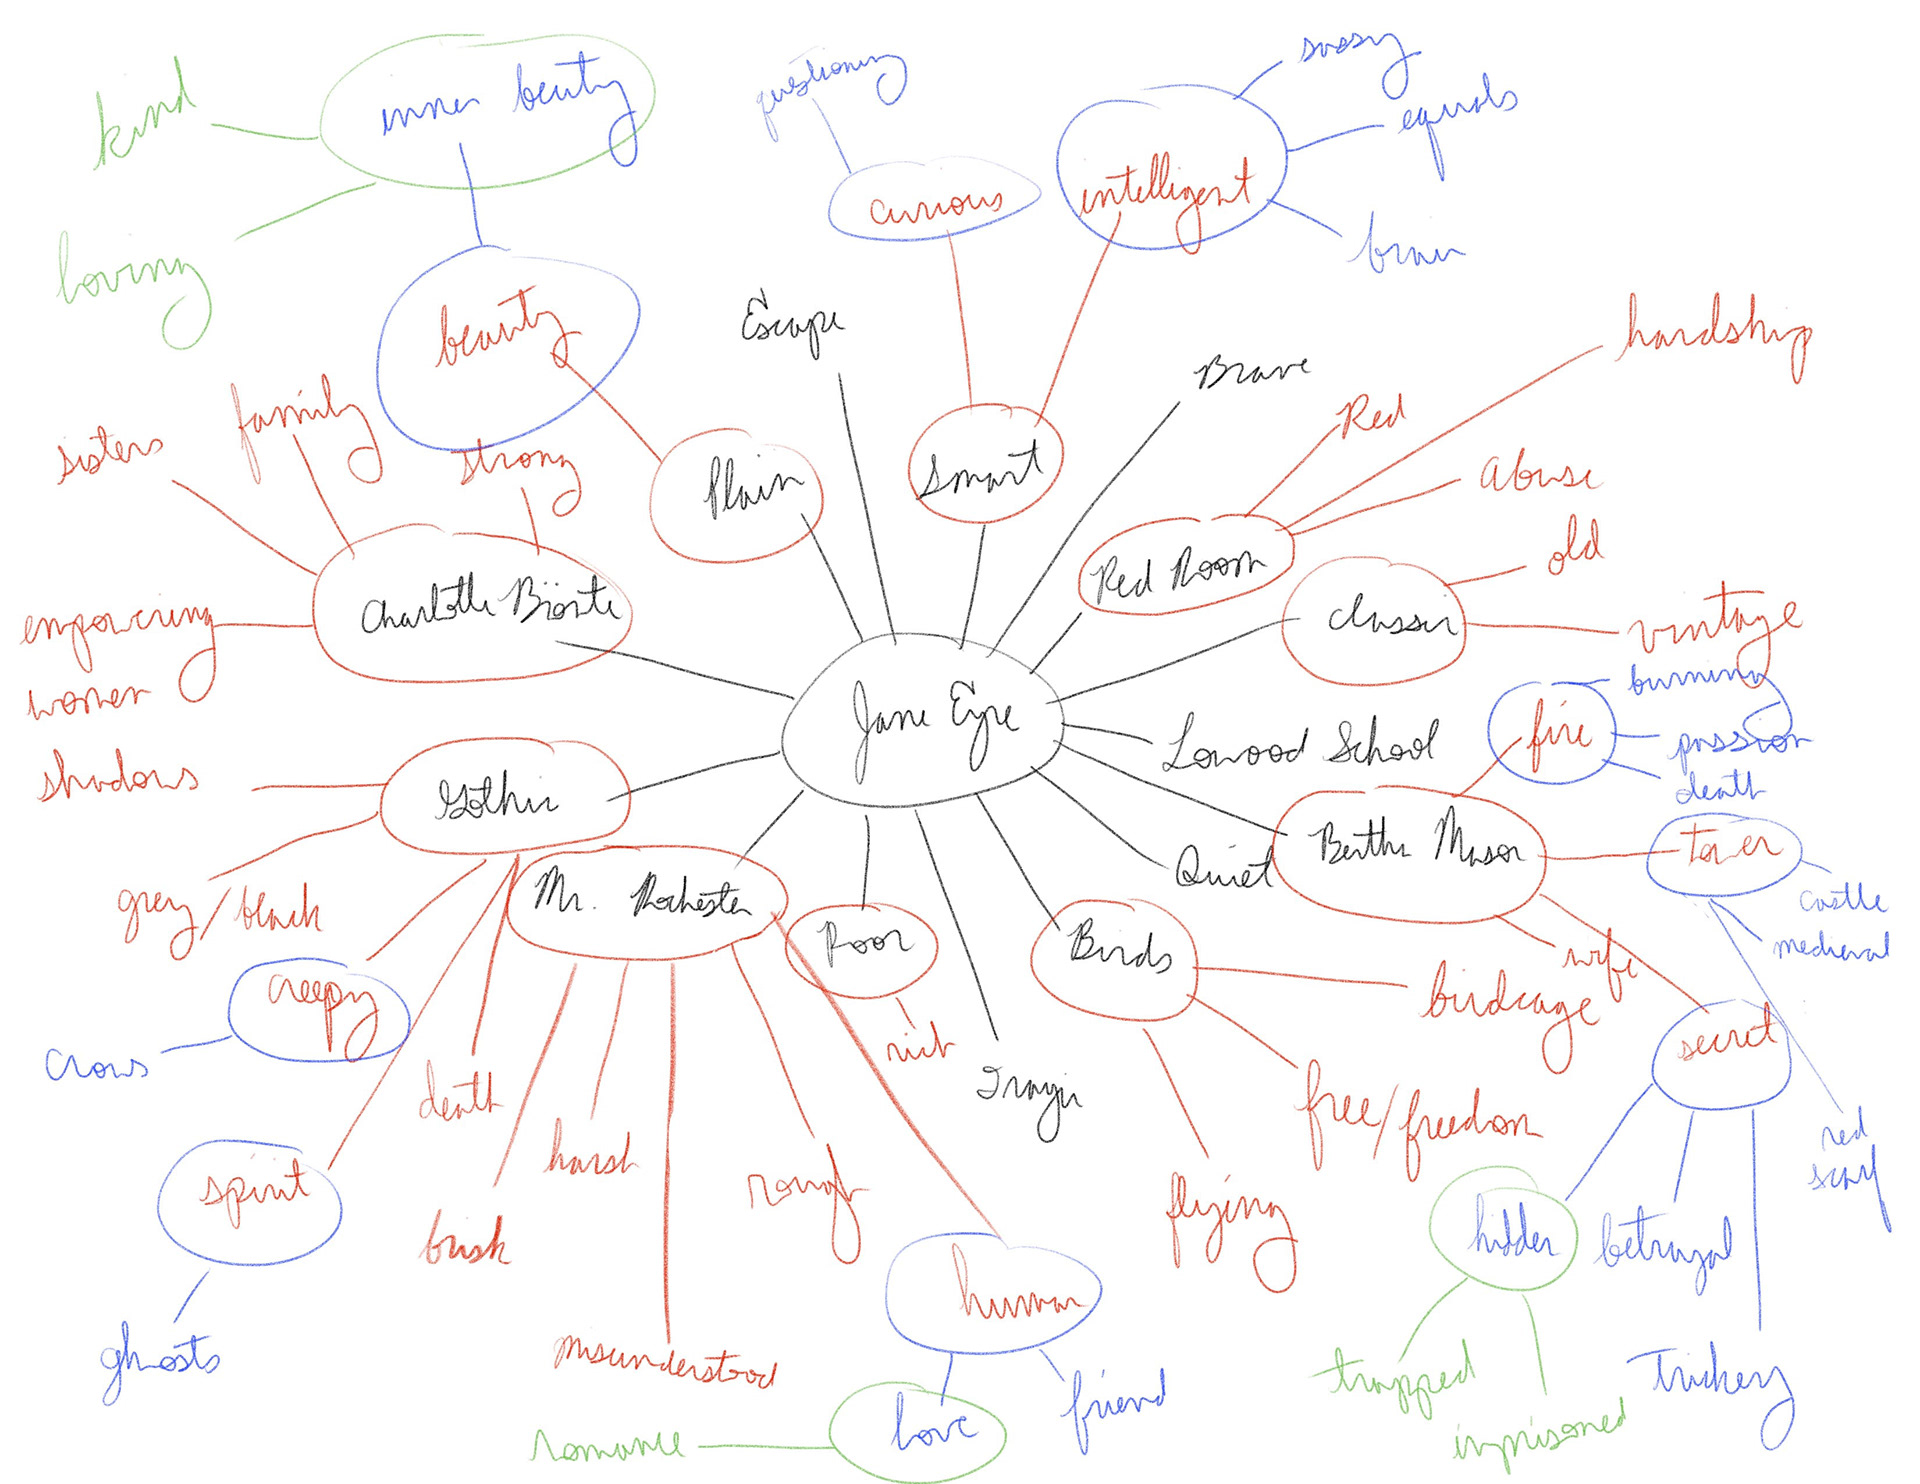 kind
inner beuty
questioning
sassy
equals
brain
curious
intelligent
loving
beauty
Escape
Brave
hardship
Red
Abuse
family
sisters
strong
Plain
Smart
old
Red Room
Classic
vintage
Charlotte Brönte
empowering
women
burning
fire
passion
death
Jane Eyre
Lowood School
shadows
Gothic
Bertha Mason
tower
castle
medieval
Quiet
grey/black
Mr. Rochester
Poor
Birds
wife
birdcage
creepy
crows
death
rich
Tragic
secret
free/freedom
red
scarf
harsh
spirit
rough
flying
brisk
hidden
betrayal
human
ghosts
misunderstood
friend
trapped
trickery
love
romance
imprisoned